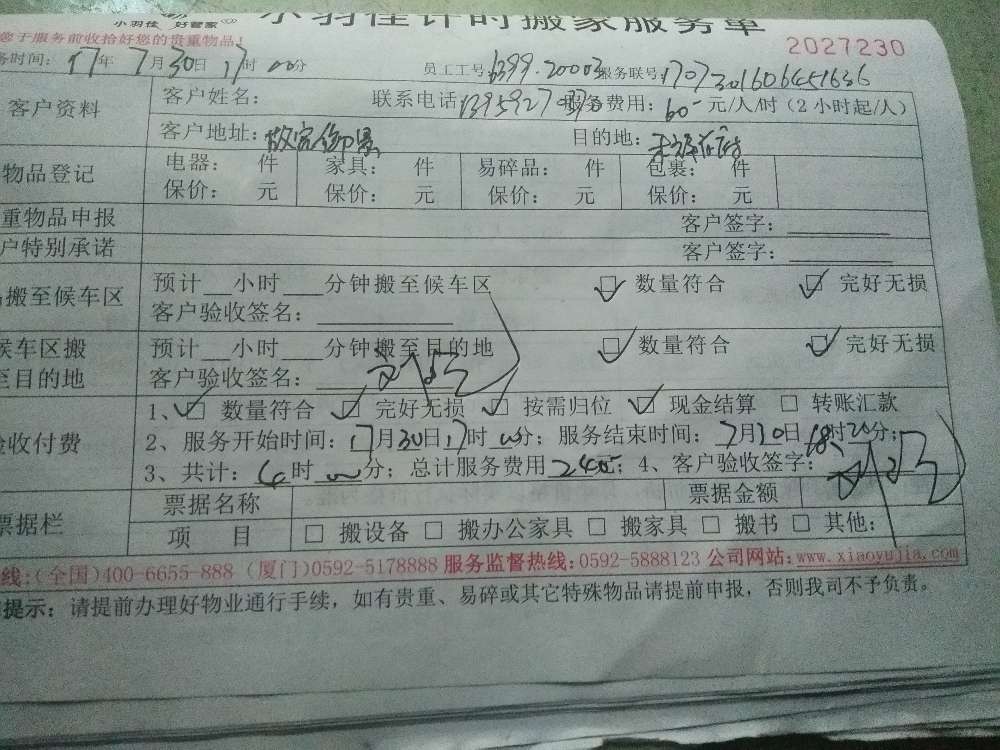 小羽佳 好管家
小羽佳计时搬家服务单
您于服务前收拾好您的贵重物品!
2027230
务时间: 17年7月30日17时00分 员工工号 服务联号
客户资料
客户姓名: 联系电话 服务费用: 60 元/人/时 (2小时起/人)
客户地址: 目的地:
物品登记
电器: 件 家具: 件 易碎品: 件 包裹: 件
保价: 元 保价: 元 保价: 元 保价: 元
重物品申报 客户签字:
户特别承诺 客户签字:
搬至候车区
预计 小时 分钟搬至候车区 数量符合 完好无损
客户验收签名:
候车区搬至目的地
预计 小时 分钟搬至目的地 数量符合 完好无损
客户验收签名:
验收付费
1、 数量符合 完好无损 按需归位 现金结算 转账汇款
2、服务开始时间: 月30日17时 分; 服务结束时间: 7月30日18时20分;
3、共计: 时 分; 总计服务费用 240元; 4、客户验收签字:
票据栏
票据名称 票据金额
项 目 搬设备 搬办公家具 搬家具 搬书 其他:
线:(全国)400-6655-888 (厦门)0592-5178888 服务监督热线:0592-5888123 公司网站:www.xiaoyujia.com
提示: 请提前办理好物业通行手续,如有贵重、易碎或其它特殊物品请提前申报,否则我司不予负责。